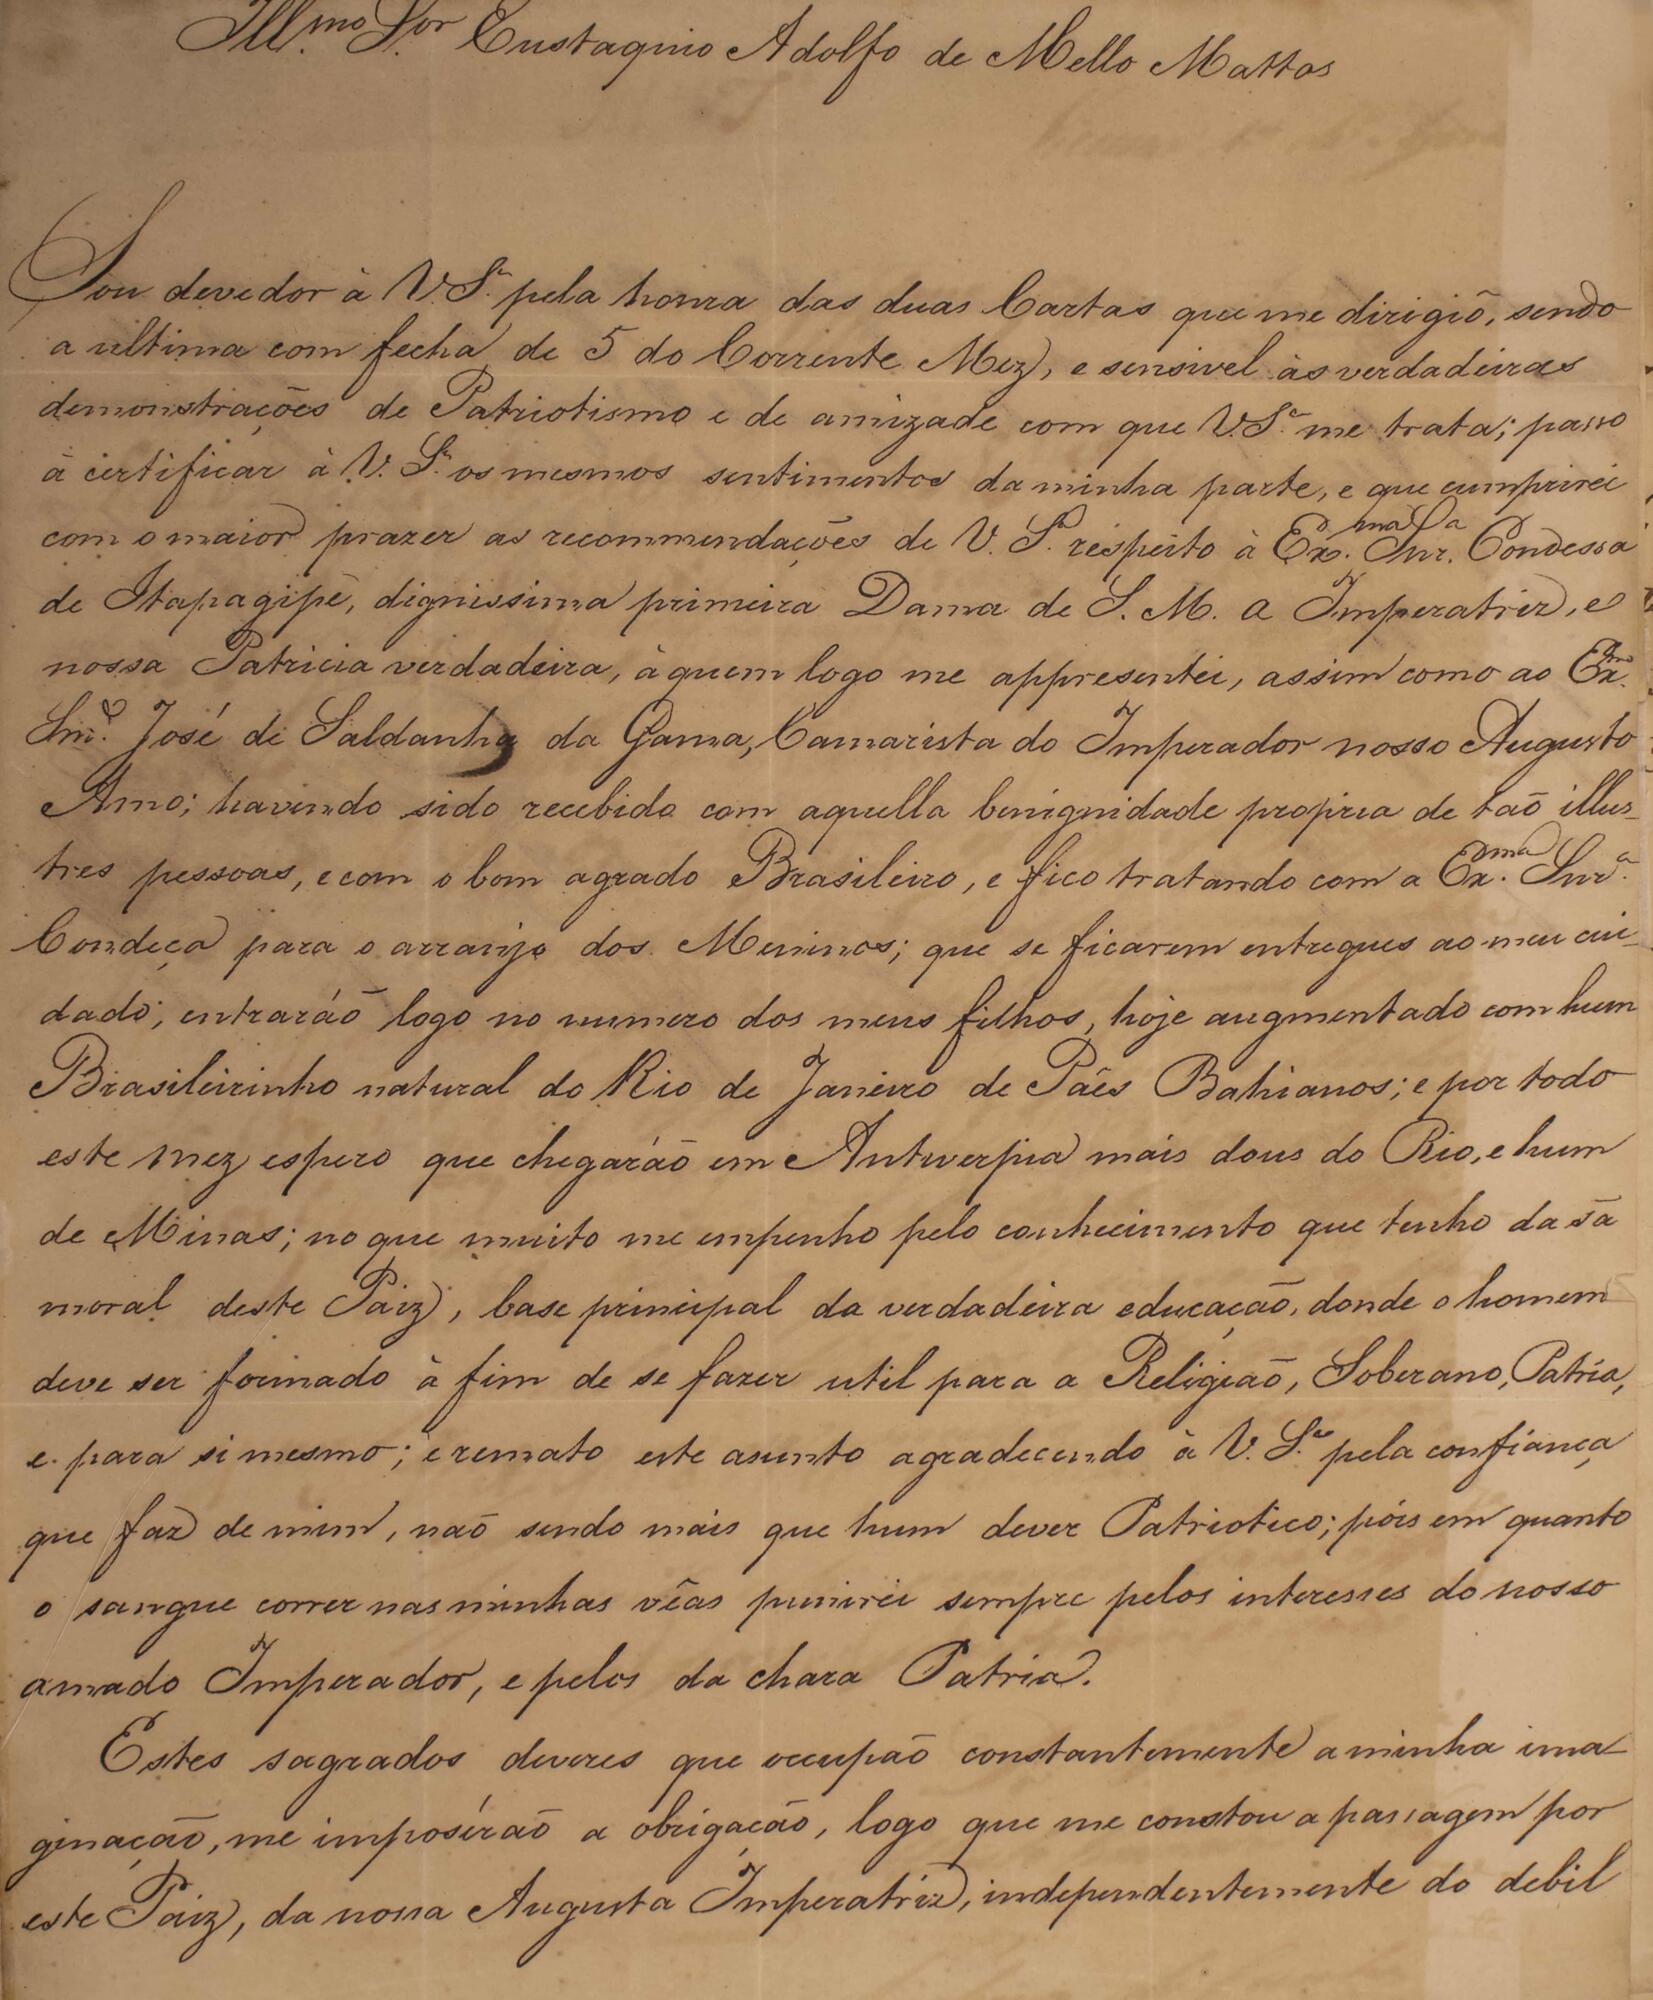 Ill.mo Sor Eustaquio Adolfo de Mello Mattos
Sou devedor à V. S.a pela honra das duas Cartas que me dirigiõ, sendo
a ultima com fecha de 5 do Corrente Mez, e sensivel às verdadeiras
demonstrações de Patriotismo e de amizade com que V. S.a me trata; passo
à certificar à V. S.a os mesmos sentimentos da minha parte, e que cumprirei
com o maior prazer as recommendações de V. S.a respeito à Ex.ma Snr.a Condessa
de Itapagipe, dignissima primeira Dama de S. M. a Imperatriz, e
nossa Patricia verdadeira, à quem logo me appresentei, assim como ao Ex.mo
Snr. José de Saldanha da Gama, Camarista do Imperador nosso Augusto
Amo; havendo sido recebido com aquella benignidade propria de taõ illus_
tres pessoas, e com o bom agrado Brasileiro, e fico tratando com a Ex.ma Snr.a
Condeça para o arranjo dos Meninos; que se ficarem entregues ao meu cui_
dado, entraráõ logo no numero dos meus filhos, hoje augmentado com hum
Brasileirinho natural do Rio de Janeiro de Pâes Bahianos; e por todo
este mez espero que chegaráõ em Antwerpia mais dous do Rio, e hum
de Minas; no que muito me empenho pelo conhecimento que tenho da sã
moral deste Paiz, base principal da verdadeira educaçaõ, donde o homem
deve ser formado à fim de se fazer util para a Religiaõ, Soberano, Patria,
e para si mesmo; e remato este asunto agradecendo à V. S.a pela confiança
que faz de mim, naõ sendo mais que hum dever Patriotico; pois em quanto
o sangue correr nas minhas vêas punirei sempre pelos interesses do nosso
amado Imperador, e pelos da chara Patria.
Estes sagrados deveres que occupaõ constantemente a minha ima_
ginaçaõ, me imposéraõ a obrigaçaõ, logo que me constou a passagem por
este Paiz, da nossa Augusta Imperatriz, independentemente do debil